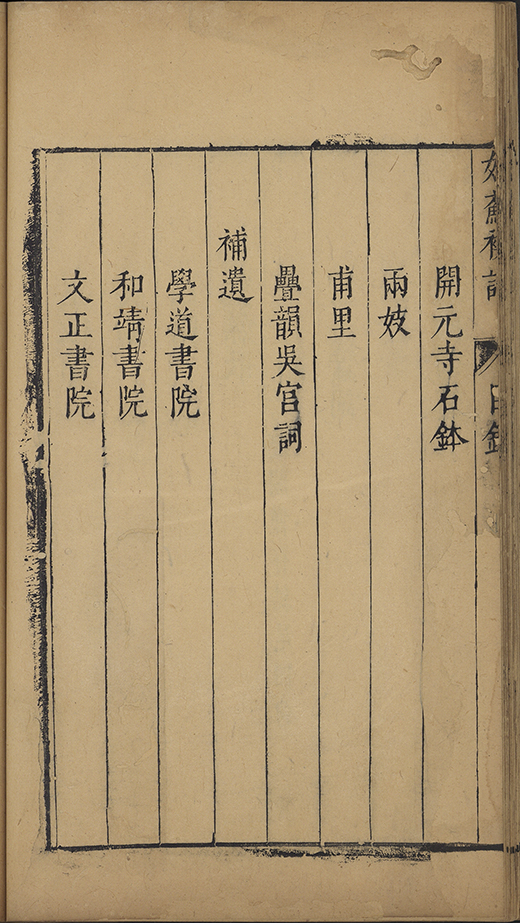 開元寺石鉢
兩妓
甫里
疊韻吳宮詞
補遺
學道書院
和靖書院
文正書院